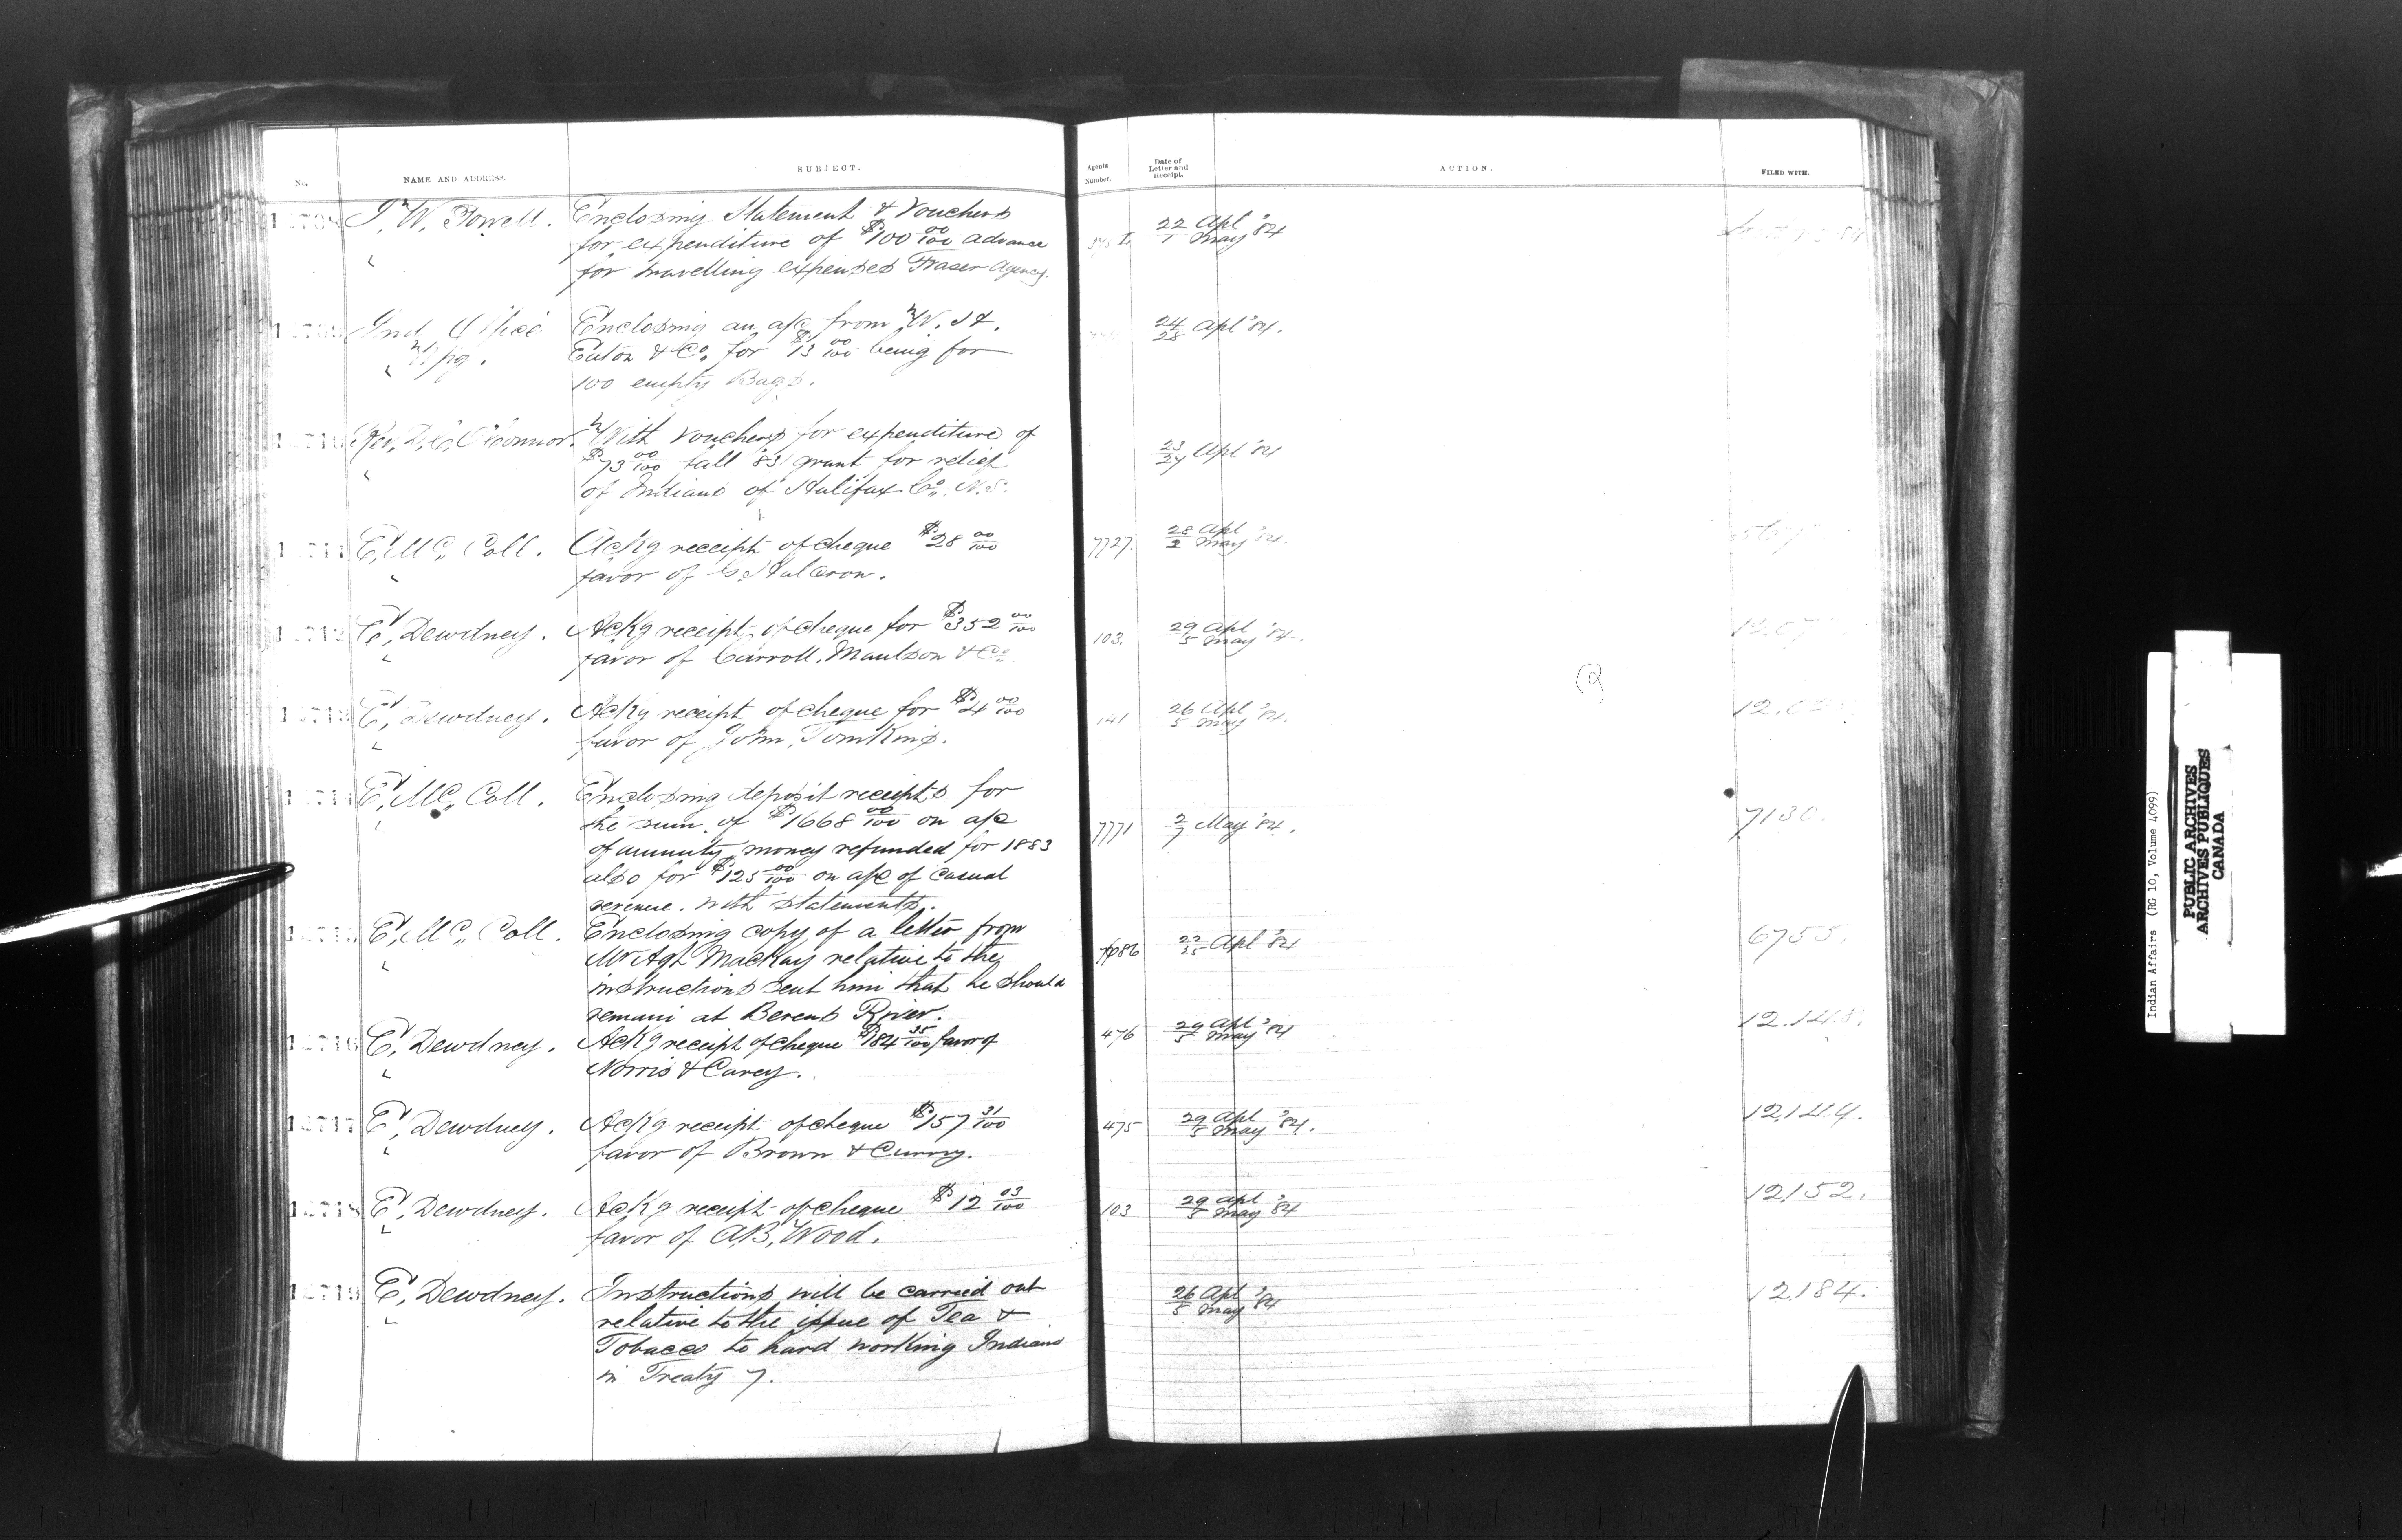 No. NAME AND ADDRESS. SUBJECT. Agents Number. Date of Letter and Receipt. ACTION. FILED WITH.
12708 I. W. Powell. Enclosing Statement & Vouchers 22/1 Apl/May '84
for expenditure of $100 00/100 advance
for travelling expenses Fraser Agency.
12709 Ind. Office Enclosing an a/c from W. H. 24/28 Apl '84.
W'pg. Eaton & Co. for $13 00/100 being for
100 empty Bags.
12710 Rev. D. C. O'Connor. With vouchers for expenditure of 23/27 Apl '84
$73 00/100 fall '83 grant for relief
of Indians of Halifax Co. N.S.
12711 E. Mc. Coll. Ackg receipt of cheque $28 00/100 7727. 28/2 Apl/May '84.
favor of G. Halcron.
12712 E. Dewdney. Ackg receipt of cheque for $352 00/100 103. 29/5 Apl/May '84.
favor of Carroll, Maulson & Co.
12713 E. Dewdney. Ackg receipt of cheque for $4 00/100 141 26/5 Apl/May '84.
favor of John Tomkins.
12714 E. Mc. Coll. Enclosing deposit receipts for
the sum of $1668 00/100 on a/c 7771 2/7 May '84. 7130.
of annuity money refunded for 1883
also for $125 00/100 on a/c of casual
revenue. with statements.
12715 E. Mc. Coll. Enclosing copy of a letter from 7686 22/25 Apl '84 6755.
Mr Agt. MacKay relative to the
instructions sent him that he should
remain at Berens River.
12716 E. Dewdney. Ackg receipt of cheque $184 35/100 favor of 476 29/5 Apl/May '84 12.148.
Norris & Carey.
12717 E. Dewdney. Ackg receipt of cheque $157 31/100 475 29/5 Apl/May '84. 12,149.
favor of Brown & Curry.
12718 E. Dewdney. Ackg receipt of cheque $12 03/100 103 29/5 Apl/May '84 12152.
favor of A.B. Wood.
12719 E. Dewdney. Instructions will be carried out 26/5 Apl/May '84 12184.
relative to the issue of Tea &
Tobacco to hard working Indians
in Treaty 7.
Indian Affairs (RG 10, Volume 4099)
PUBLIC ARCHIVES
ARCHIVES PUBLIQUES
CANADA